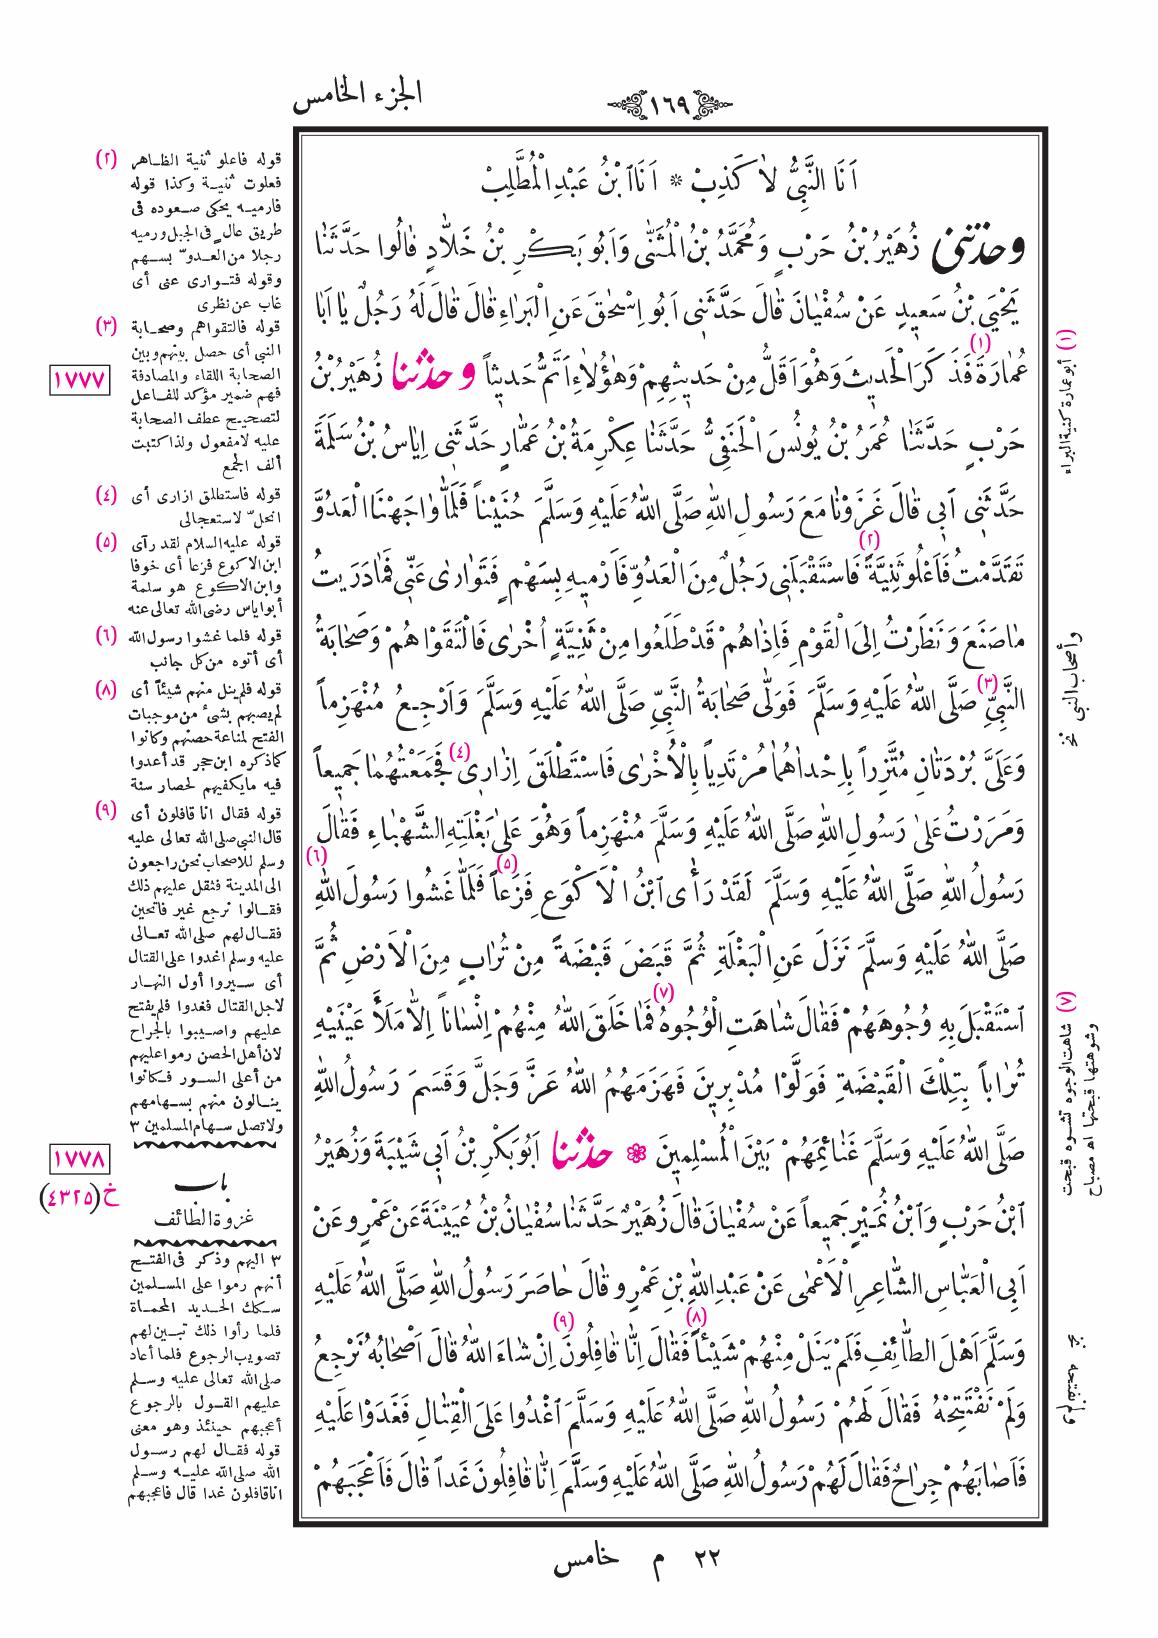 الجزء الخامس
١٦٩
اَنَا النَّبِيُّ لَا كَذِبْ * اَنَا ابْنُ عَبْدِ الْمُطَّلِبْ
وحدثنى زُهَيْرُ بْنُ حَرْبٍ وَمُحَمَّدُ بْنُ الْمُثَنّٰى وَاَبُو بَكْرِ بْنُ خَلَّادٍ قَالُوا حَدَّثَنَا
يَحْيَى بْنُ سَعِيدٍ عَنْ سُفْيَانَ قَالَ حَدَّثَنِى اَبُو اِسْحٰقَ عَنِ الْبَرَاءِ قَالَ قَالَ لَهُ رَجُلٌ يَا اَبَا
عُمَارَةَ (١) فَذَكَرَ الْحَدِيثَ وَهُوَ اَقَلُّ مِنْ حَدِيثِهِمْ وَهٰؤُلَاءِ اَتَمُّ حَدِيثاً وحدثنا زُهَيْرُ بْنُ
حَرْبٍ حَدَّثَنَا عُمَرُ بْنُ يُونُسَ الْحَنَفِىُّ حَدَّثَنَا عِكْرِمَةُ بْنُ عَمَّارٍ حَدَّثَنِى اِيَاسُ بْنُ سَلَمَةَ
حَدَّثَنِى اَبِى قَالَ غَزَوْنَا مَعَ رَسُولِ اللهِ صَلَّى اللهُ عَلَيْهِ وَسَلَّمَ حُنَيْناً فَلَمَّا وَاجَهْنَا الْعَدُوَّ
تَقَدَّمْتُ فَاَعْلُو ثَنِيَّةً (٢) فَاسْتَقْبَلَنِى رَجُلٌ مِنَ الْعَدُوِّ فَاَرْمِيهِ بِسَهْمٍ فَتَوَارٰى عَنِّى فَمَا دَرَيْتُ
مَا صَنَعَ وَنَظَرْتُ اِلَى الْقَوْمِ فَاِذَا هُمْ قَدْ طَلَعُوا مِنْ ثَنِيَّةٍ اُخْرٰى فَالْتَقَوْا هُمْ وَصَحَابَةُ
النَّبِيِّ (٣) صَلَّى اللهُ عَلَيْهِ وَسَلَّمَ فَوَلّٰى صَحَابَةُ النَّبِيِّ صَلَّى اللهُ عَلَيْهِ وَسَلَّمَ وَاَرْجِعُ مُنْهَزِماً
وَعَلَىَّ بُرْدَتَانِ مُتَّزِراً بِاِحْدَاهُمَا مُرْتَدِياً بِالْاُخْرٰى فَاسْتَطْلَقَ اِزَارِى (٤) فَجَمَعْتُهُمَا جَمِيعاً
وَمَرَرْتُ عَلٰى رَسُولِ اللهِ صَلَّى اللهُ عَلَيْهِ وَسَلَّمَ مُنْهَزِماً وَهُوَ عَلٰى بَغْلَتِهِ الشَّهْبَاءِ فَقَالَ
رَسُولُ اللهِ صَلَّى اللهُ عَلَيْهِ وَسَلَّمَ لَقَدْ رَأٰى ابْنُ الْاَكْوَعِ فَزَعاً (٥) فَلَمَّا غَشُوا رَسُولَ اللهِ (٦)
صَلَّى اللهُ عَلَيْهِ وَسَلَّمَ نَزَلَ عَنِ الْبَغْلَةِ ثُمَّ قَبَضَ قَبْضَةً مِنْ تُرَابٍ مِنَ الْاَرْضِ ثُمَّ
اسْتَقْبَلَ بِهِ وُجُوهَهُمْ فَقَالَ شَاهَتِ الْوُجُوهُ (٧) فَمَا خَلَقَ اللهُ مِنْهُمْ اِنْسَاناً اِلَّا مَلَأَ عَيْنَيْهِ
تُرَاباً بِتِلْكَ الْقَبْضَةِ فَوَلَّوْا مُدْبِرِينَ فَهَزَمَهُمُ اللهُ عَزَّ وَجَلَّ وَقَسَمَ رَسُولُ اللهِ
صَلَّى اللهُ عَلَيْهِ وَسَلَّمَ غَنَائِمَهُمْ بَيْنَ الْمُسْلِمِينَ حدثنا اَبُو بَكْرِ بْنُ اَبِى شَيْبَةَ وَزُهَيْرُ
ابْنُ حَرْبٍ وَابْنُ نُمَيْرٍ جَمِيعاً عَنْ سُفْيَانَ قَالَ زُهَيْرٌ حَدَّثَنَا سُفْيَانُ بْنُ عُيَيْنَةَ عَنْ عَمْرٍو عَنْ
اَبِى الْعَبَّاسِ الشَّاعِرِ الْاَعْمٰى عَنْ عَبْدِ اللهِ بْنِ عَمْرٍو قَالَ حَاصَرَ رَسُولُ اللهِ صَلَّى اللهُ عَلَيْهِ
وَسَلَّمَ اَهْلَ الطَّائِفِ فَلَمْ يَنَلْ مِنْهُمْ شَيْئاً (٨) فَقَالَ اِنَّا قَافِلُونَ (٩) اِنْ شَاءَ اللهُ قَالَ اَصْحَابُهُ نَرْجِعُ
وَلَمْ نَفْتَتِحْهُ فَقَالَ لَهُمْ رَسُولُ اللهِ صَلَّى اللهُ عَلَيْهِ وَسَلَّمَ اغْدُوا عَلَى الْقِتَالِ فَغَدَوْا عَلَيْهِ
فَاَصَابَهُمْ جِرَاحٌ فَقَالَ لَهُمْ رَسُولُ اللهِ صَلَّى اللهُ عَلَيْهِ وَسَلَّمَ اِنَّا قَافِلُونَ غَداً قَالَ فَاَعْجَبَهُمْ
٢٢ م خامس
(١) أبو عمارة كنية البراء
وأصحاب النبى نخ
(٧) شاهت الوجوه تشوه قبحت
وشوهتها قبحتها اه مصباح
(٢) قوله فاعلو ثنية الظاهر
فعلوت ثنية وكذا قوله
فارميه يحكى صعوده فى
طريق عال فى الجبل ورميه
رجلا من العدوّ بسهم
وقوله فتوارى عنى أى
غاب عن نظرى
(٣) قوله فالتقواهم وصحابة
النبى أى حصل بينهم وبين
الصحابة اللقاء والمصادفة
١٧٧٧
فهم ضمير مؤكد للفاعل
لتصحيح عطف الصحابة
عليه لامفعول ولذا كتبت
ألف الجمع
(٤) قوله فاستطلق ازارى أى
انحلّ لاستعجالى
(٥) قوله عليه السلام لقد رآى
ابن الاكوع فزعا أى خوفا
وابن الاكوع هو سلمة
أبو اياس رضى الله تعالى عنه
(٦) قوله فلما غشوا رسول الله
أى أتوه من كل جانب
(٨) قوله فلم ينل منهم شيئاً أى
لم يصبهم بشىء من موجبات
الفتح لمناعة حصنهم وكانوا
كما ذكره ابن حجر قد أعدوا
فيه مايكفيهم لحصار سنة
(٩) قوله فقال انا قافلون أى
قال النبى صلى الله تعالى عليه
وسلم للاصحاب نحن راجعون
الى المدينة فثقل عليهم ذلك
فقالوا نرجع غير فاتحين
فقال لهم صلى الله تعالى
عليه وسلم اغدوا على القتال
أى سيروا أول النهار
لاجل القتال فغدوا فلم يفتح
عليهم واصيبوا بالجراح
لان أهل الحصن رموا عليهم
من أعلى السور فكانوا
ينالون منهم بسهامهم
ولاتصل سهام المسلمين ٣
١٧٧٨
خ (٤٣٢٥)
باب
غزوة الطائف
٣ اليهم وذكر فى الفتح
أنهم رموا على المسلمين
سكك الحديد المحماة
فلما رأوا ذلك تبين لهم
تصويب الرجوع فلما أعاد
صلى الله تعالى عليه وسلم
عليهم القول بالرجوع
أعجبهم حينئذ وهو معنى
قوله فقال لهم رسول
الله صلى الله عليه وسلم
انا قافلون غدا قال فاعجبهم